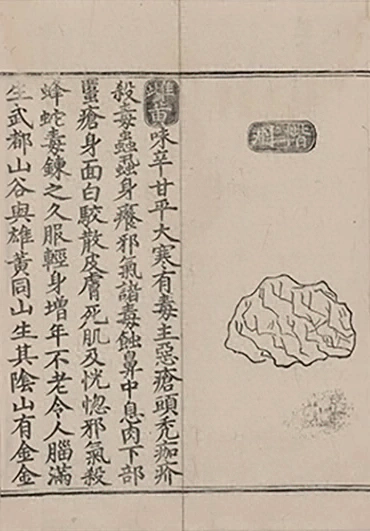 雌黃味辛甘平大寒有毒主惡瘡頭禿痂疥
殺毒蟲蝨身癢邪氣諸毒蝕鼻中息肉下部
䘌瘡身面白駮散皮膚死肌及恍惚邪氣殺
蜂蛇毒鍊之久服輕身增年不老令人腦滿
生武都山谷與雄黃同山生其陰山有金金